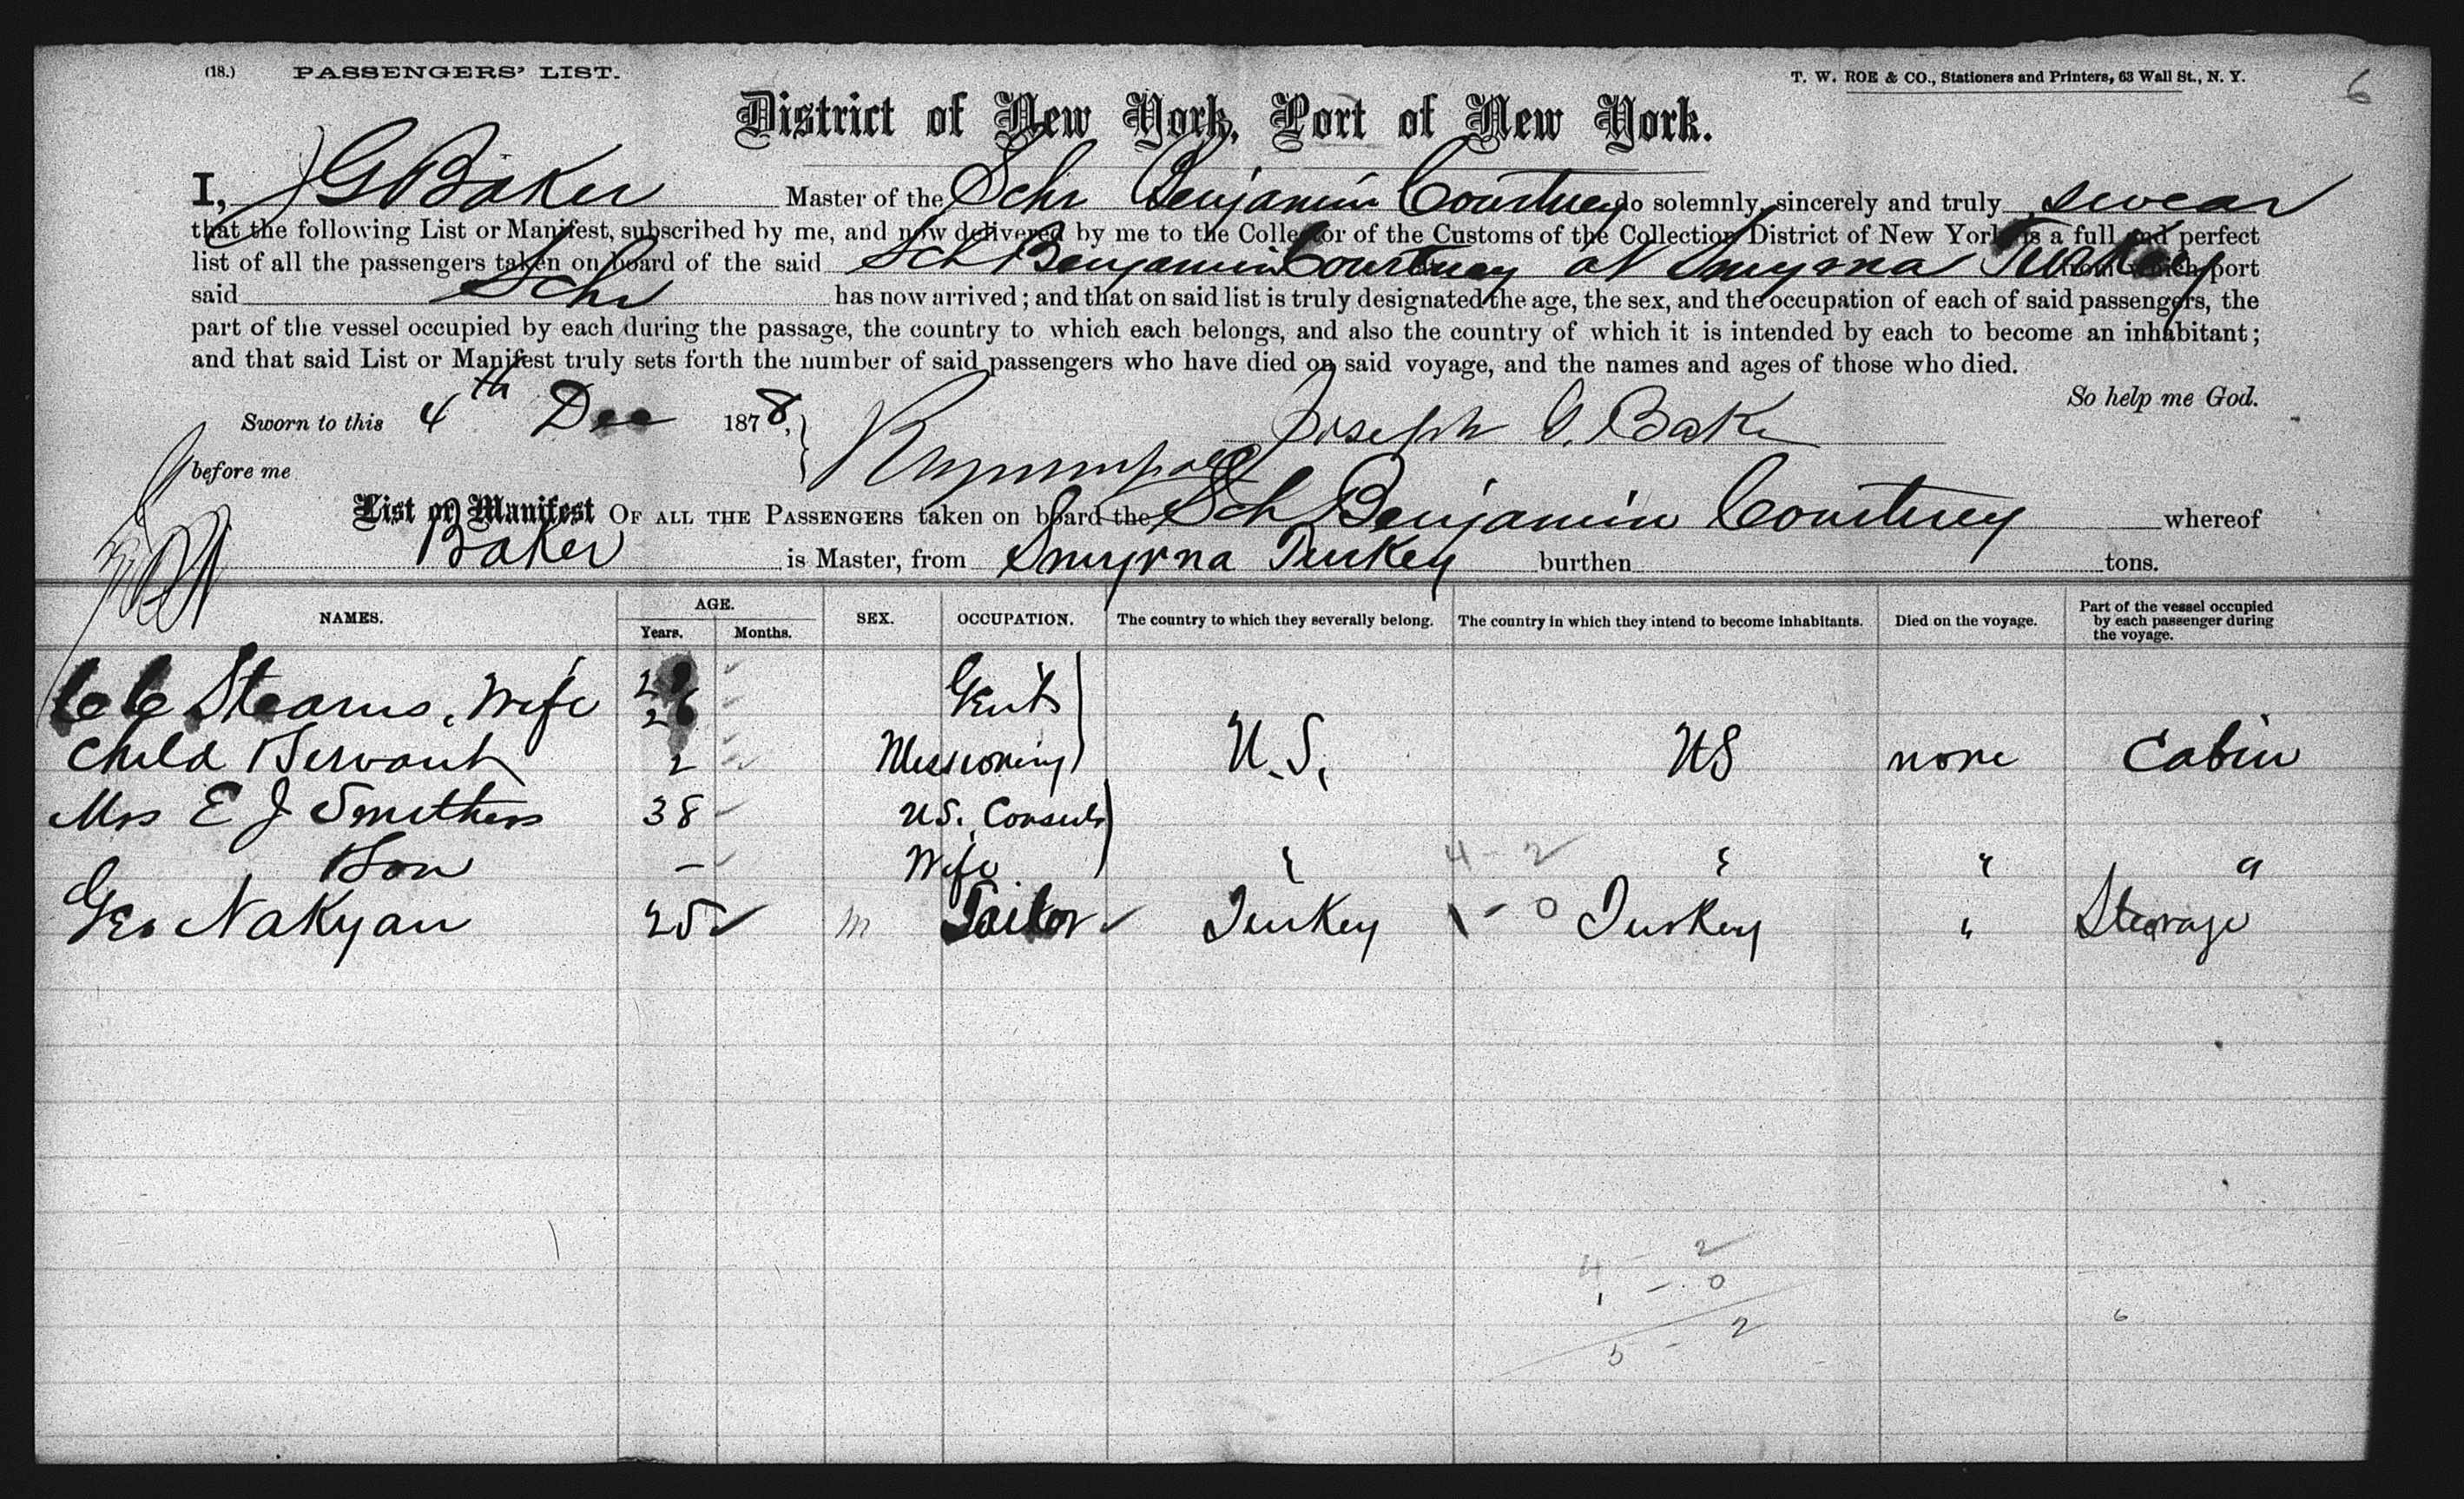 (18.) PASSENGERS' LIST. T. W. ROE & CO., Stationers and Printers, 63 Wall St., N. Y. 6
District of New York, Port of New York.
I, J G Baker Master of the Schr Benjamin Courtney do solemnly, sincerely and truly swear
that the following List or Manifest, subscribed by me, and now delivered by me to the Collector of the Customs of the Collection District of New York is a full and perfect
list of all the passengers taken on board of the said Sch Benjamin Courtney at Smyrna Turkey from which port
said Schr has now arrived; and that on said list is truly designated the age, the sex, and the occupation of each of said passengers, the
part of the vessel occupied by each during the passage, the country to which each belongs, and also the country of which it is intended by each to become an inhabitant;
and that said List or Manifest truly sets forth the number of said passengers who have died on said voyage, and the names and ages of those who died.
So help me God.
Sworn to this 4th Dec 1878, Joseph G. Baker
before me
List or Manifest OF ALL THE PASSENGERS taken on board the Sch Benjamin Courtney whereof
Baker is Master, from Smyrna Turkey burthen tons.
NAMES. AGE. Years. Months. SEX. OCCUPATION. The country to which they severally belong. The country in which they intend to become inhabitants. Died on the voyage. Part of the vessel occupied by each passenger during the voyage.
Stearns, Wife 26 Gents
Child & Servant 2 Missionary U.S. US none Cabin
Mrs E J Smithers 38 U.S. Consuls
& Son — Wife " 4 - 2 " " "
Geo Nakyan 25 m Tailor Turkey 1 - 0 Turkey " Steerage
4 - 2
1 - 0
5 - 2
6